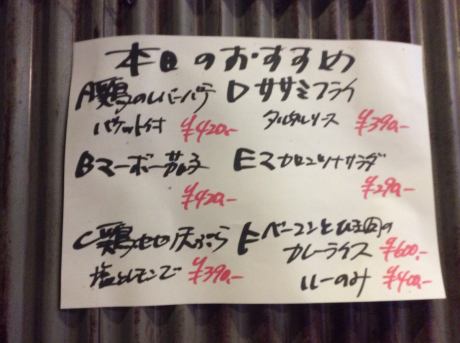 本日のおすすめ
A 鶏のレバーパテ
バケット付 ¥420-
Bマーボー茄子
¥420-
C鶏セセリ天ぷら
塩とレモンで ¥390-
D ササミフライ
タルタルソース ¥390-
Eマカロニツナサラダ
¥290-
F ベーコンとひよこ豆の
カレーライス ¥600-
ルーのみ ¥400-